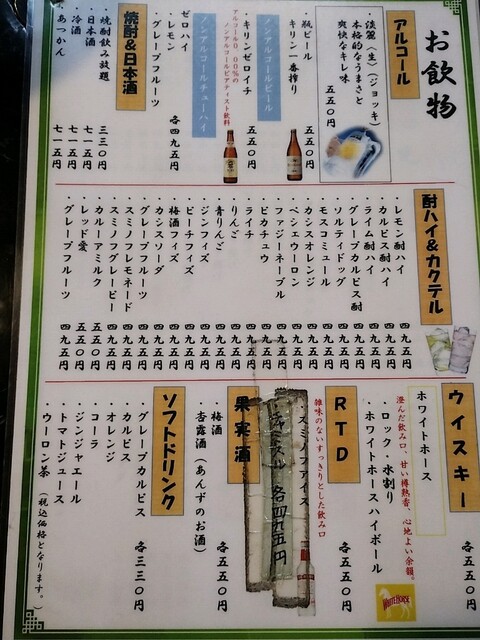 お飲物
アルコール
・淡麗〈生〉(ジョッキ)
本格的なうまさと
爽快なキレ味
五五〇円
・瓶ビール
キリン一番搾り
五五〇円
ノンアルコールビール
・キリンゼロイチ
五五〇円
アルコール0.00%の
ノンアルコールビアテイスト飲料
ノンアルコールチューハイ
ゼロハイ
・レモン
・グレープフルーツ
各四九五円
焼酎&日本酒
焼酎飲み放題
三三〇円
・日本酒
七一五円
・冷酒
七一五円
・あつかん
七一五円
酎ハイ&カクテル
・レモン酎ハイ
四九五円
・カルピス酎ハイ
四九五円
・ライム酎ハイ
四九五円
・グレープカルピス酎
四九五円
・ソルティドッグ
四九五円
・モスコミュール
四九五円
・カシスオレンジ
四九五円
・ベシェウーロン
四九五円
・ファジーネーブル
四九五円
・ピカチュウ
四九五円
・ライチ
四九五円
・りんご
四九五円
・青りんご
四九五円
・ジンフィズ
四九五円
・ピーチフィズ
四九五円
・梅酒フィズ
四九五円
・カシスソーダ
四九五円
・グレープフルーツ
四九五円
・スミノフレモネード
四九五円
・スミノフグレービー
四九五円
・カルーアミルク
五五〇円
・レッド愛
五五〇円
・グレープフルーツ
四九五円
ウイスキー
各五五〇円
ホワイトホース
澄んだ飲み口、甘い樽熟香、心地よい余韻。
・ロック・水割り
・ホワイトホースハイボール
各五五〇円
WHITE HORSE
RTD
・スミノフアイス
五五〇円
雑味のないすっきりとした飲み口
各四九五円
果実酒
・梅酒
・杏露酒(あんずのお酒)
各五五〇円
ソフトドリンク
・グレープカルピス
・カルピス
・オレンジ
・コーラ
・ジンジャエール
・トマトジュース
・ウーロン茶
各三三〇円
(税込価格となります。)